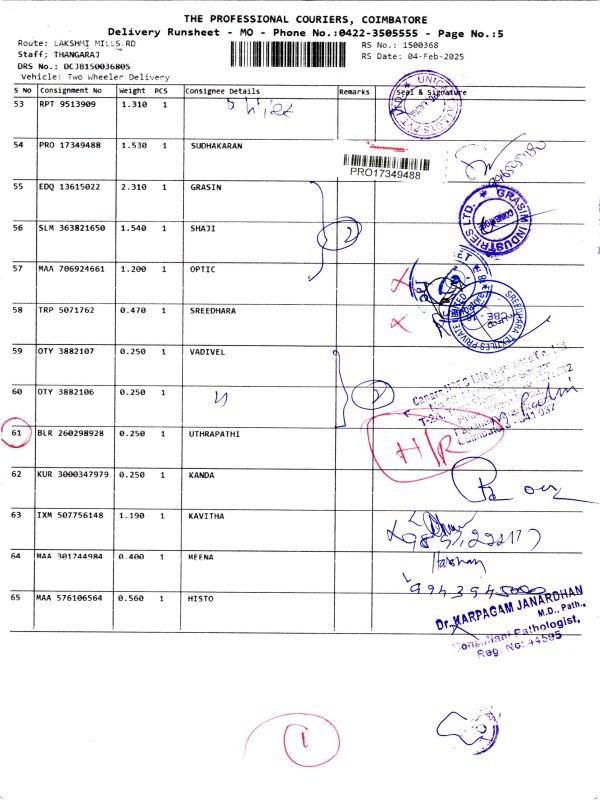 THE PROFESSIONAL COURIERS, COIMBATORE
Delivery Runsheet - MO - Phone No.:0422-3505555 - Page No.:5
Route: LAKSHMI MILLS RD
RS No.: 1500368
Staff; THANGARAJ
RS Date: 04-Feb-2025
DRS No.: DCJB150036805
Vehicle: Two Wheeler Delivery
S No Consignment No Weight PCS Consignee Details Remarks Seal & Signature
53 RPT 9513909 1.310 1
54 PRO 17349488 1.530 1 SUDHAKARAN
PRO17349488
55 EDQ 13615022 2.310 1 GRASIN
GRASIM INDUSTRIES LTD.
56 SLM 363821650 1.540 1 SHAJI
2
57 MAA 706924661 1.200 1 OPTIC
58 TRP 5071762 0.470 1 SREEDHARA
SREEDHARA TEXTILES PRIVATE LIMITED
59 OTY 3882107 0.250 1 VADIVEL
60 OTY 3882106 0.250 1
2
61 BLR 260298928 0.250 1 UTHRAPATHI
H/R
62 KUR 3000347979 0.250 1 KANDA
63 IXM 507756148 1.190 1 KAVITHA
64 MAA 301744984 0.400 1 MEENA
65 MAA 576106564 0.560 1 HISTO
Dr. KARPAGAM JANARDHAN
M.D., Path.,
Consultant Pathologist,
Reg No: 44585
1